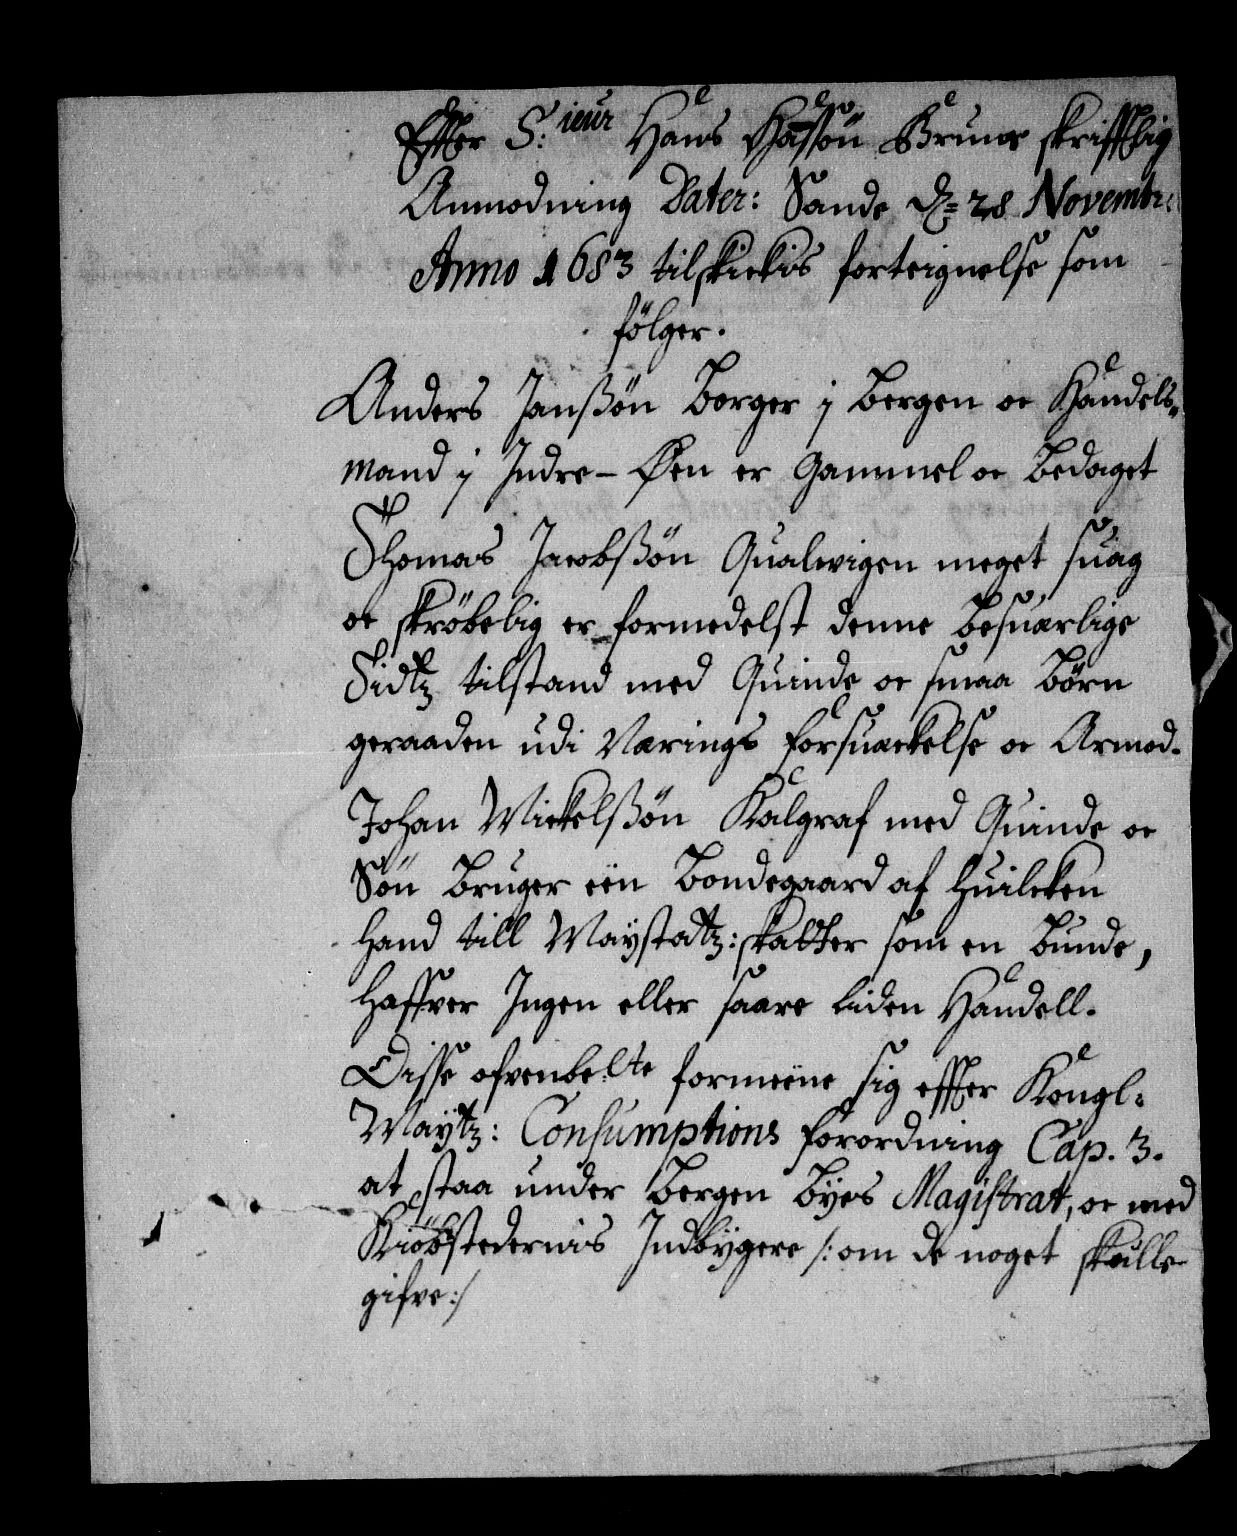 Effter S:ieur Hans Hanssøn Bruns skrifftlig
Anmodning Dater: Sande d= 28 Novembr:
Anno 1683 tilskickis forteignelse som
følger.
Anders Janssøn Borger j Bergen oc Handels-
mand j Indre-Øen er Gammel oc bedaget
Thomas Jacobssøn Qualwigen meget suag
oc skrøbelig er formedelst denne besuærlige
Tidtz tilstand med Quinde oc smaa Børn
geraaden udi Nærings forsuackelse oc Armod.
Johan Mickelssøn Kalgraf med Quinde oc
Søn Bruger een Bondegaard af huilcken
hand till Maystatz: skatter som en bunde,
haffver Ingen eller saare liden Handell.
Disse ofvenbelte formeene sig effter Kongl.
Maytz: Consumptions forordning Cap. 3.
at staa under Bergen Byes Magistrat, oc med
Kiöbstedernis Indbygere /: om de noget skulle
gifve:/